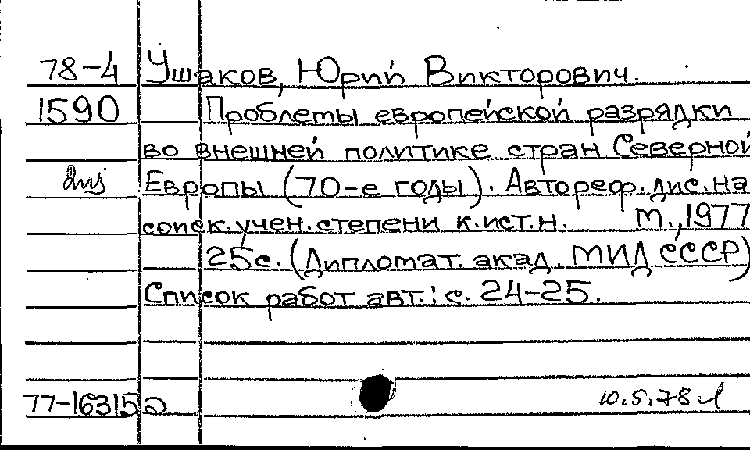 78-4 Ушаков, Юрий Викторович.
1590 Проблемы европейской разрядки
во внешней политике стран Северной
Европы (70-е годы). Автореф. дис. на
соиск. учен. степени к.ист.н. М., 1977
25с. (Дипломат. акад. МИД СССР)
Список работ авт.: с. 24-25.
77-16315а 10.5.78